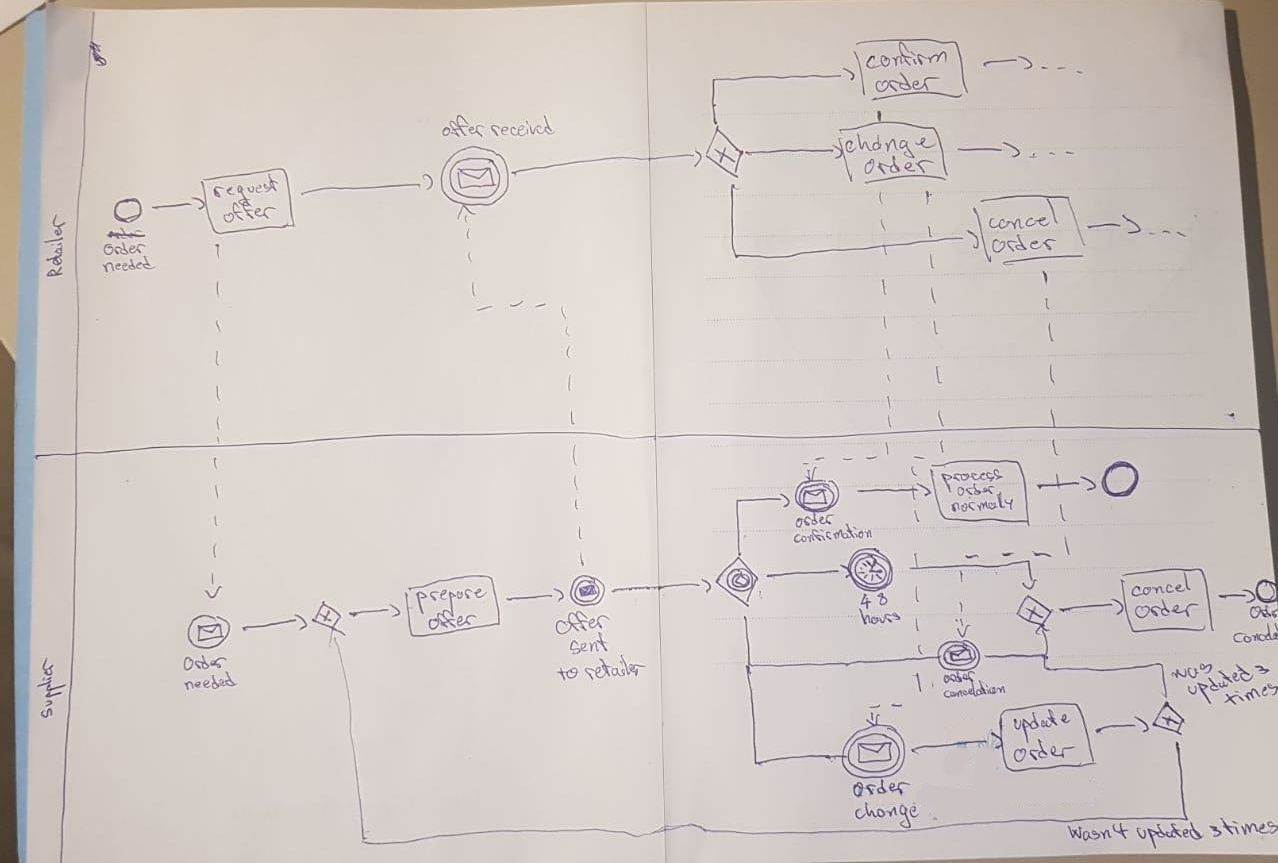 Retailer
order
needed
request
offer
offer received
confirm
order
change
order
cancel
order
Supplier
Order
needed
prepare
offer
offer
sent
to retailer
order
confirmation
process
order
normally
48
hours
cancel
order
order
cancelation
was
updated 3
times
update
order
order
change
Wasn't updated 3 times